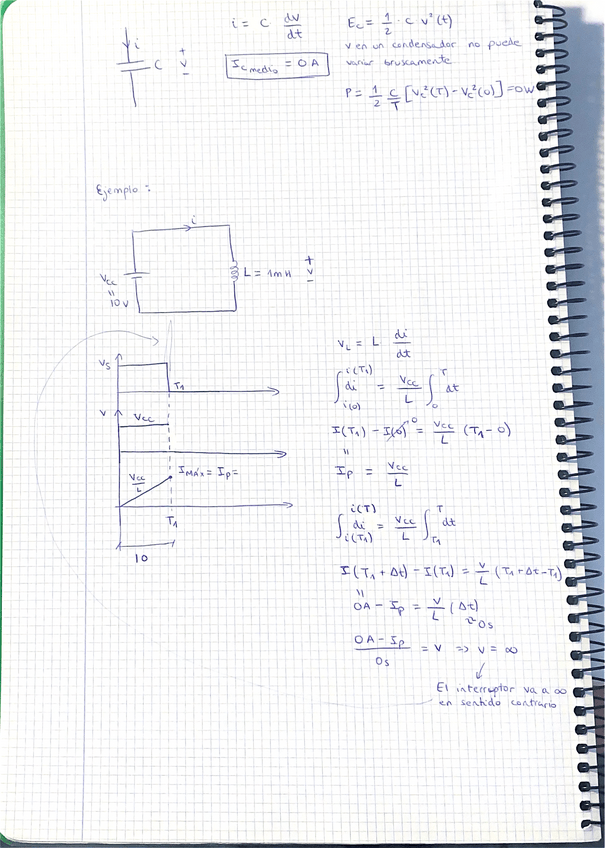 i
C
+
v
-
i = C dv/dt
I_C medio = 0 A
E_C = 1/2 · C v²(t)
v en un condensador no puede
variar bruscamente
P = 1/2 C/T [V_C²(T) - V_C²(0)] = 0 W
Ejemplo :
i
V_CC
"
10 V
L = 1mH
+
v
-
V_S
T_1
V
V_CC
V_CC/L
I_MÁX = I_P =
T_1
10
V_L = L di/dt
∫_{i(0)}^{i(T_1)} di = V_CC/L ∫_0^T dt
I(T_1) - I(0)^0 = V_CC/L (T_1 - 0)
"
I_P = V_CC/L
∫_{i(T_1)}^{i(T)} di = V_CC/L ∫_{T_1}^T dt
I(T_1 + Δt) - I(T_1) = V/L (T_1 + Δt - T_1)
"
0A - I_P = V/L (Δt)
≈ 0s
0A - I_P / 0s = V => V = ∞
El interruptor va a ∞
en sentido contrario